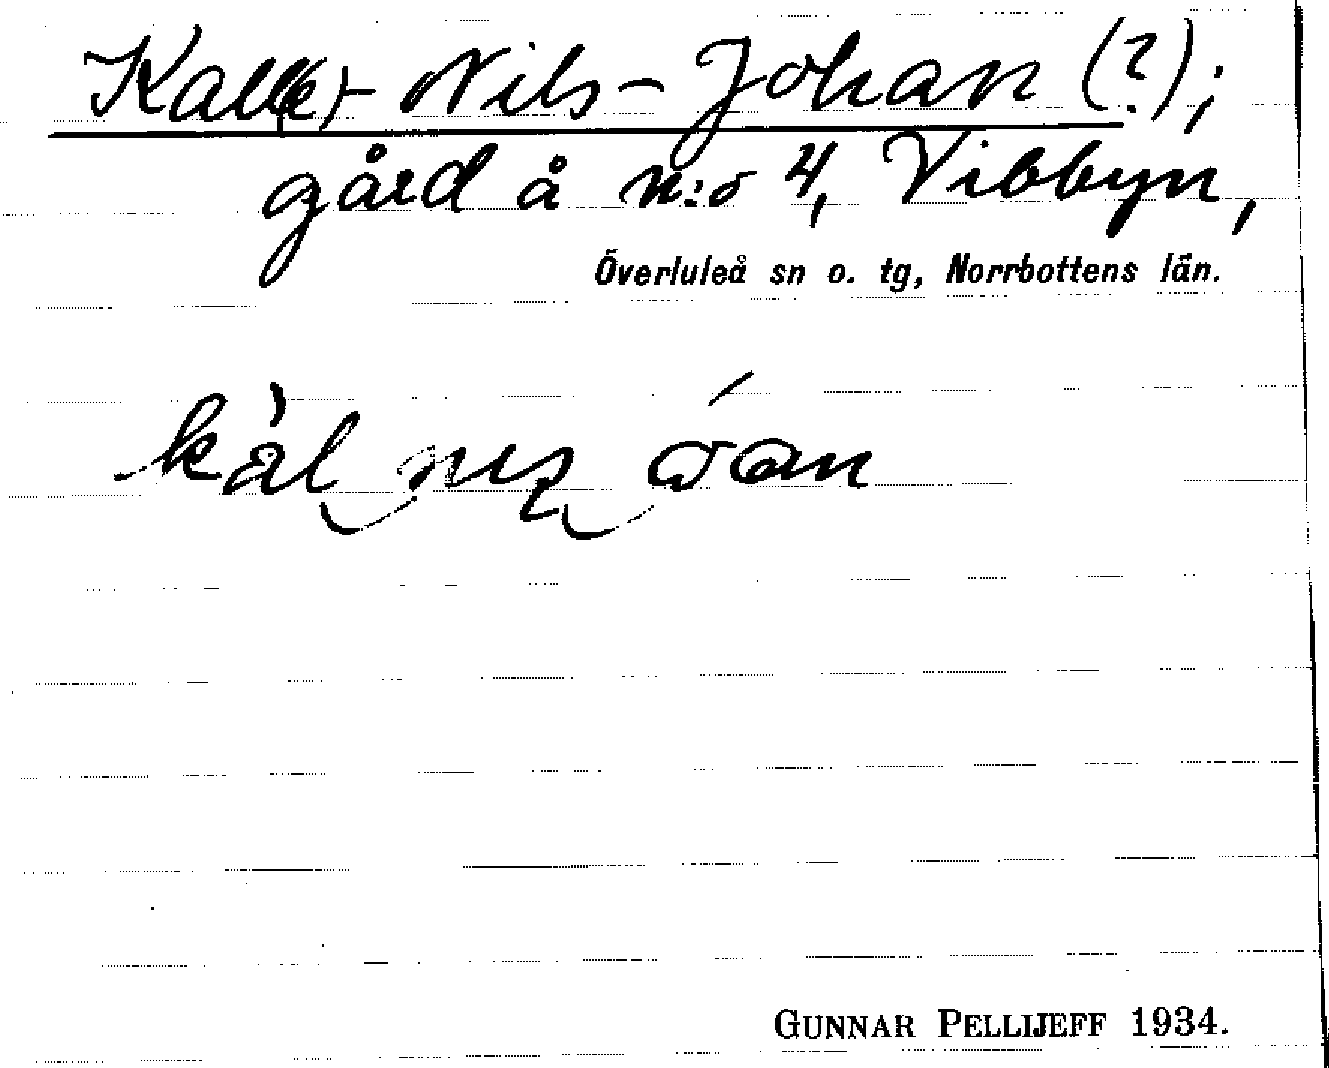 Kall(e)-Nils-Johan (?);
gård å n:o 4, Vibbyn,
Överluleå sn o. tg, Norrbottens län.
GUNNAR PELLIJEFF 1934.